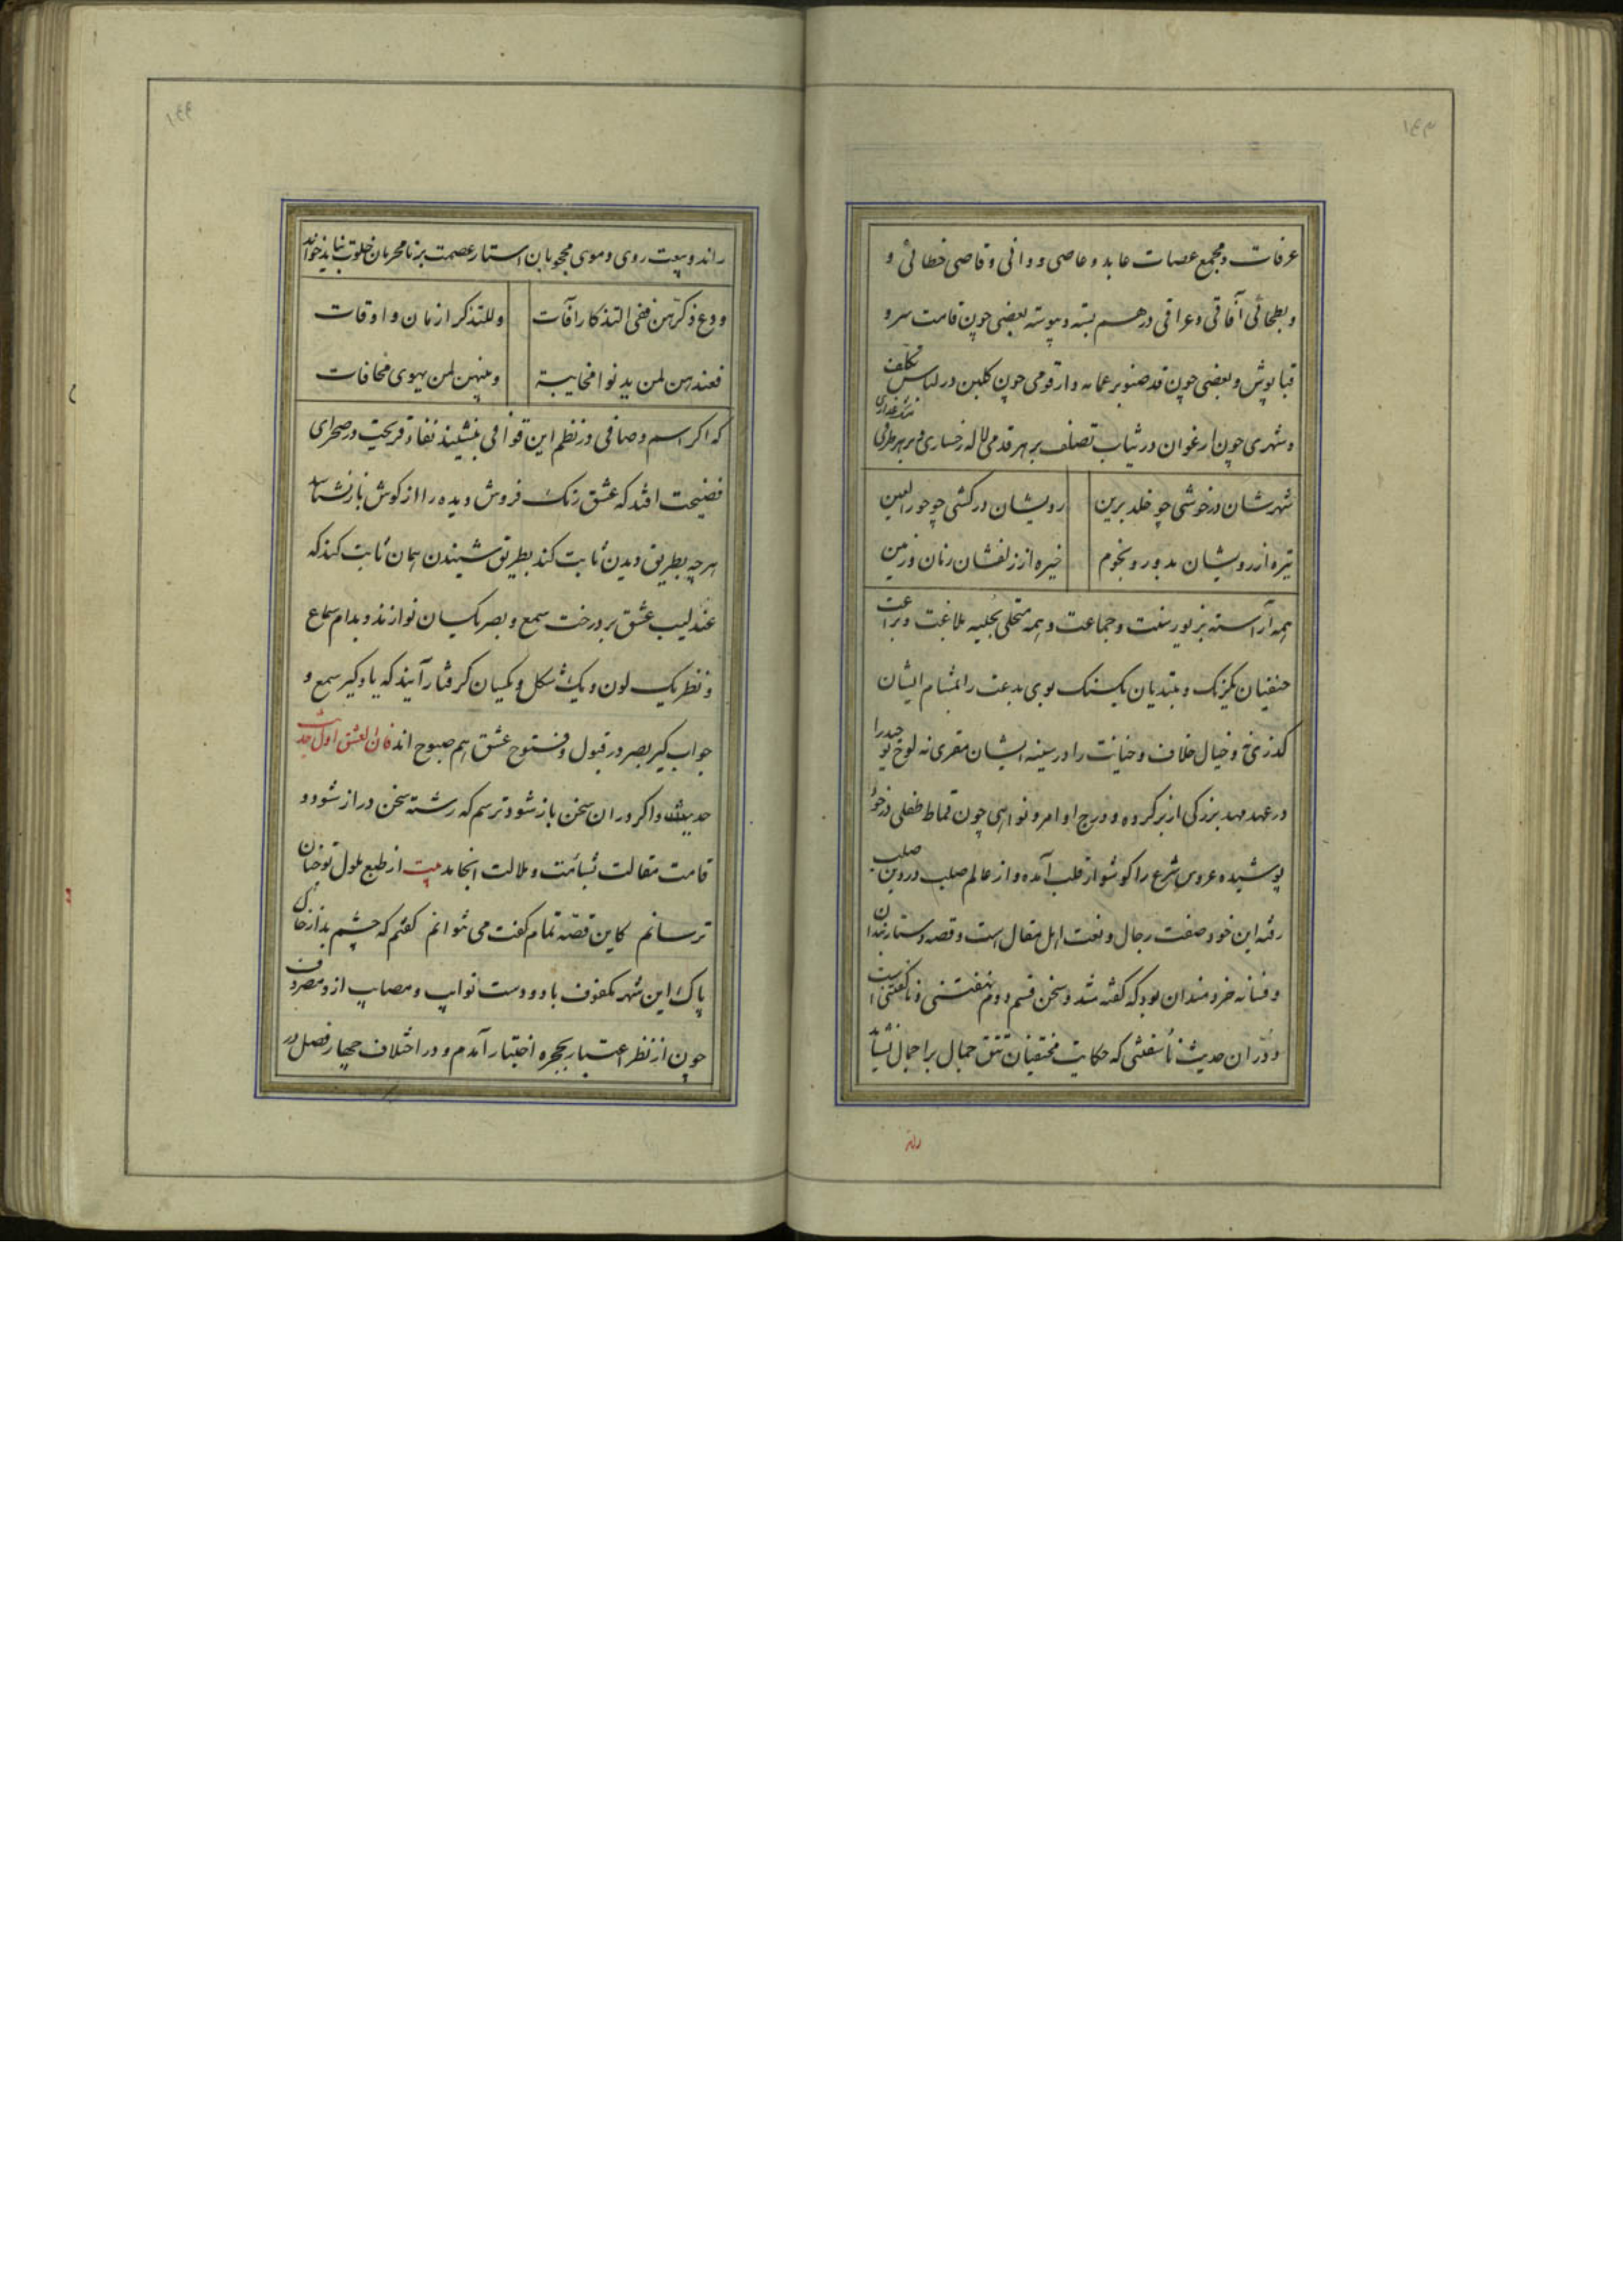 ١٤٣
عرفات و مجمع عصات عابد و عاصی و دانی و قاصی خطائی و
و بطحائی آفاقی و عراقی در هم بسته و پیوسته بعضی چون قامت سرو
قبا پوش و بعضی چون قد صنوبر عمامه دار قومی چون کلبن در لباس تکلف
و شهری چون ارغوان در ثیاب تصلف بر هر قدمی لاله رخساری و بر هر طرفی
شهرشان در خوشی چو خلد برین رویشان در کشی چو حور العین
تیره از رویشان بدور و نجوم خیره از زلفشان زنان و زمین
همه آراسته بزیور سنت و جماعت و همه متحلی بحلیه بلاغت و براعت
حنفیان یکرنک و مبتدیان یکسنک بوی بدعت را بمشام ایشان
کذر نی و خیال خلاف و خیانت را در سینه ایشان مقری نه لوح
در عهد مهد بزرکی از بر کرده و درج اوامر و نواهی چون قماط طفلی در خود
پوشیده عروس شرع را کوشوار از قلب آمده و از عالم صلب در دین صلب
رفته این خود صفت رجال و نعت اهل مقال است و قصه دستار بندان
و فسانه خردمندان بود که کفته شد و سخن قسم دوم نهفتنی و ناکفتنی است
و در آن حدیث ناسفتنی که حکایت مختفیان تتق جمال بر اجمال نشاید
راند
١٤٤
راند و بیت روی و موی محجوبان استار عصمت بر نامحرمان خلوت نباید خواند
و دع ذکرهن ففی التذکار آفات و للتذکر ازمان و اوقات
فعندهن لمن یدنو امخایبة و منهن لمن یهوی مخافات
که اکر اسم وصافی در نظم این قوافی بنشیند نقاد قریحت در صحرای
فضیحت افتد که عشق زنک فروش دیده را از کوش باز نشناسد
هر چه بطریق دیدن ثابت کند بطریق شنیدن همان ثابت کند که
عندلیب عشق بر درخت سمع و بصر یکسان نوازند و بدام سماع
و نظر یک لون و یک شکل و یکسان کرفتار آیند که یاد کیر سمع و
جواب کیر بصر در قبول و فتوح عشق هم صبوح اند فان العشق اول حدیث
حدیث و اکر در ان سخن باز شود ترسم که رشته سخن دراز شود و
قامت مقالت بسآمت و ملالت انجامد بیت از طبع ملول تو چنان
ترسانم کاین قصه تمام کفت می نتوانم کفتم که چشم بد از خاک
پاک این شهر مکفوف باد و دست نوایب و مصایب از و مصروف
چون از نظر اعتبار بحجره اختبار آمدم و در اختلاف چهار فصل در